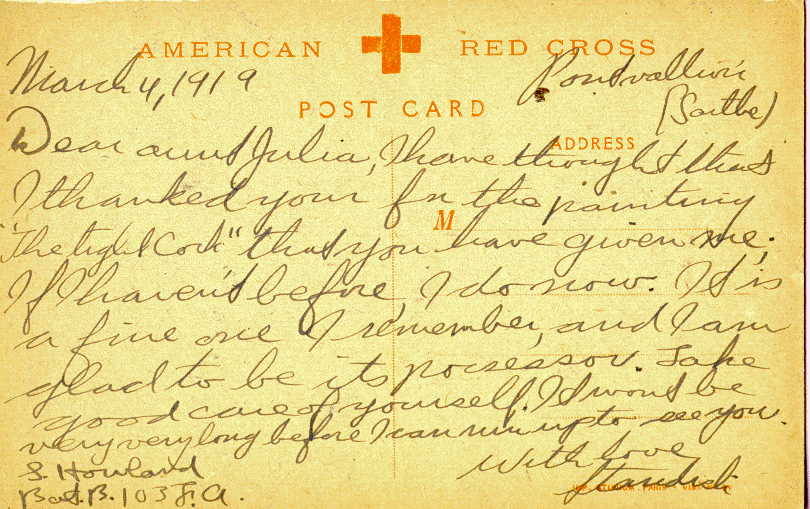 AMERICAN RED CROSS
March 4, 1919
Pontvallain
(Sarthe)
POST CARD
ADDRESS
Dear aunt Julia, I have thought that
I thanked your for the painting
M
"The tight Cork" that you have given me.
If I haven't before, I do now. It is
a fine one I remember, and I am
glad to be its possessor. Take
good care of yourself. It won't be
very very long before I can run up to see you.
With love
Standish
S. Howland
Bat. B. 103 F.A.